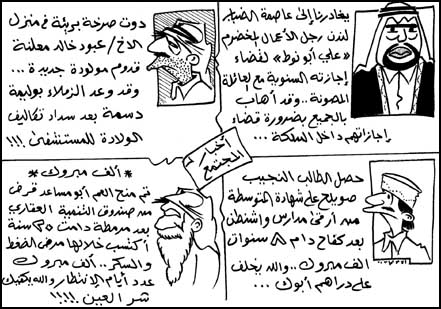 يغادرنا إلى عاصمة الضباب
لندن رجل الأعمال المخضرم
«علي أبو نوط» لقضاء
إجازته السنوية مع العائلة
المصونة .. وقد أهاب
بالجميع بضرورة قضاء
إجازاتهم داخل المملكة ...
دوت صرخة بريئة في منزل
الأخ / عبود خالد معلنة
قدوم مولودة جديدة ...
وقد وعد الزملاء بوليمة
دسمة بعد سداد تكاليف
الولادة للمستشفى !!!
أخبار
المجتمع
حصل الطالب النجيب
صويلح على شهادة المتوسطة
من أرقى مدارس واشنطن
بعد كفاح دام ٨ سنوات
الف مبروك .. والله يخلف
على دراهم أبوك ...
* ألف مبروك *
تم منح العم أبو مساعد قرض
من صندوق التنمية العقاري
بعد مرمطة دامت ٢٥ سنة
أكتسب خلالها مرض الضغط
والسكر .. ألف مبروك
عدد أيام الإنتظار والله يكفيك
شر العين !!!!